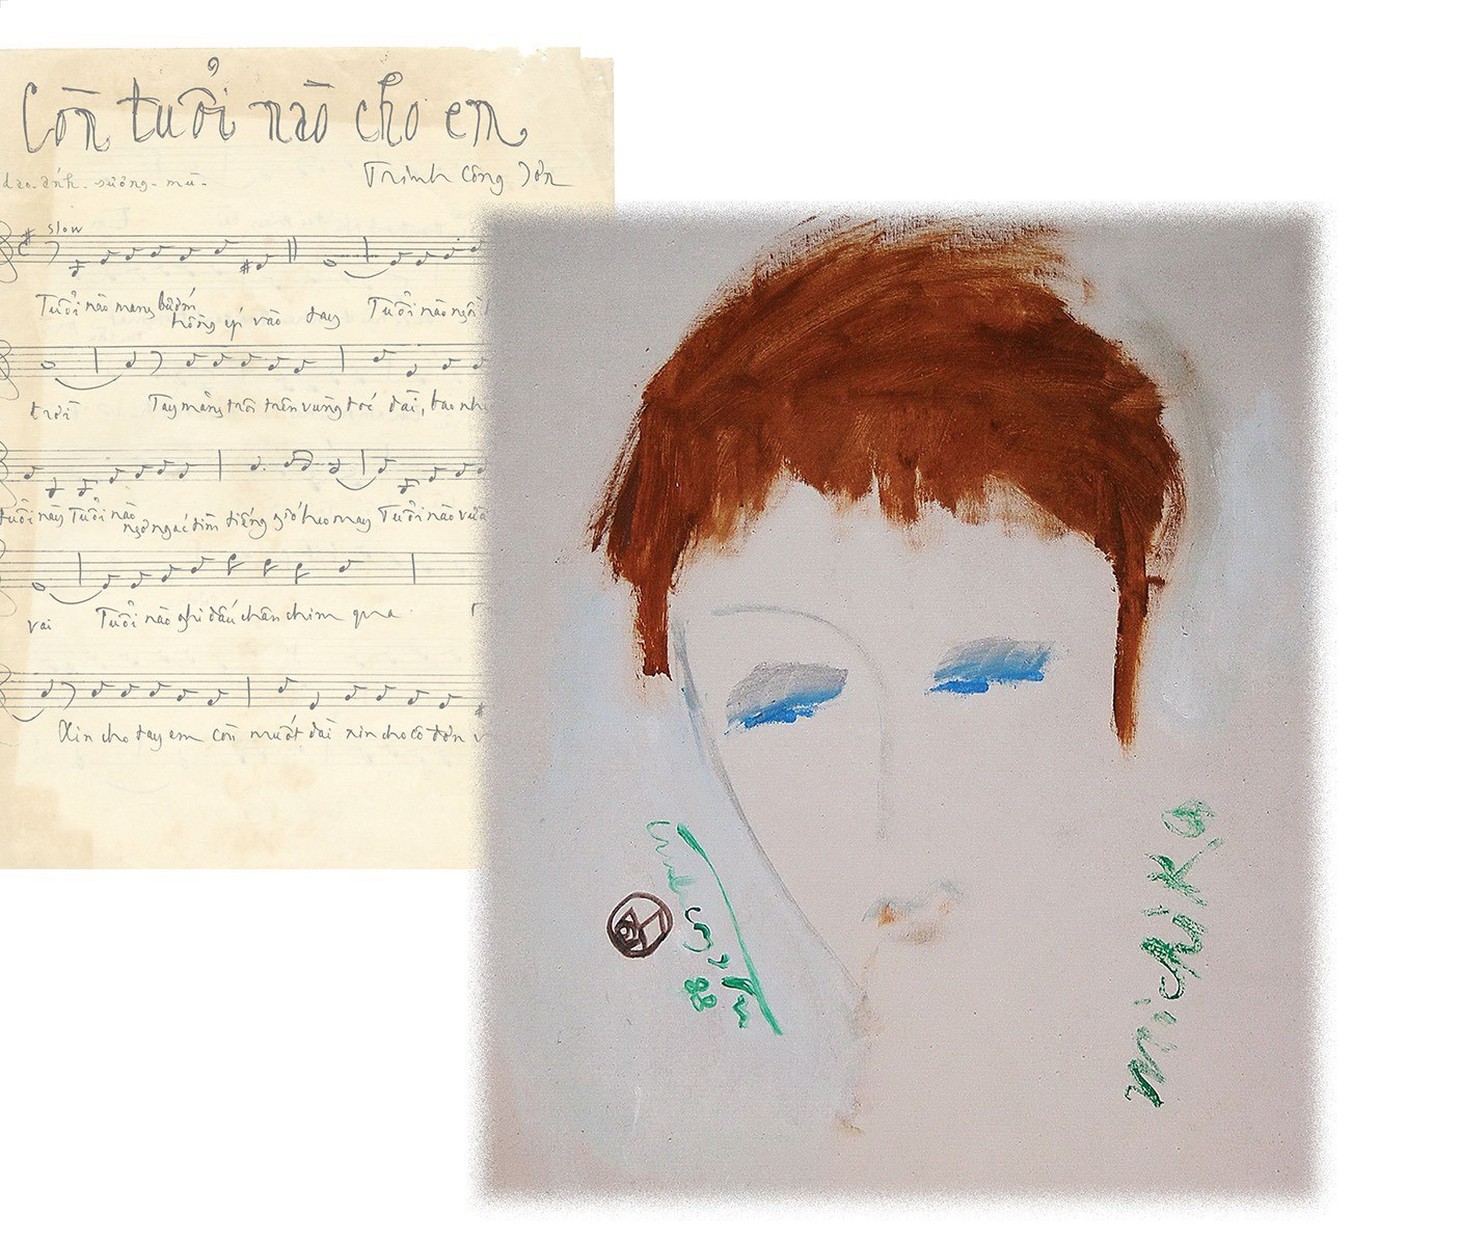 Còn tuổi nào cho em
dao-ánh-sương-mù-
Trịnh Công Sơn
slow
Tuổi nào mang bướm hồng ép vào đây Tuổi nào ngồi
trời Tay măng trôi trên vùng tóc dài, bao
tuổi này Tuổi nào ngơ ngác tìm tiếng gió heo may Tuổi nào vừa
vai Tuổi nào ghi dấu chân chim qua
Xin cho tay em còn muốt dài xin cho cô đơn
88
michiko